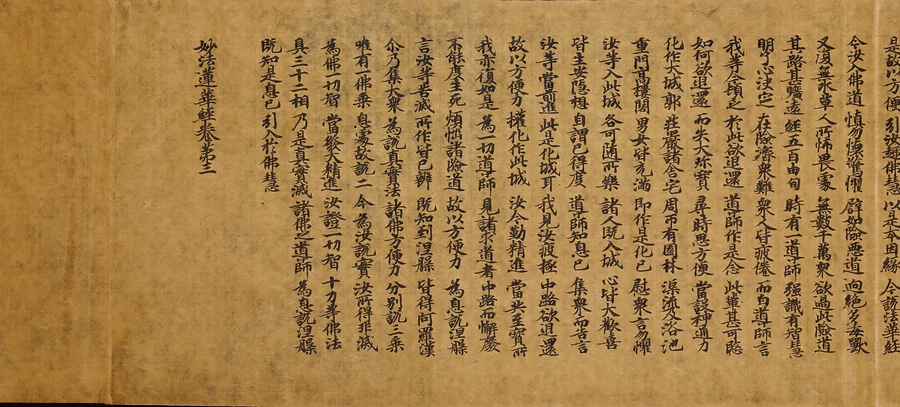 是故以方便 引汝趣佛慧 以是本因緣 今說法華經
令汝入佛道 慎勿懷驚懼 譬如險惡道 迥絕多毒獸
又復無水草 人所怖畏處 無數千萬衆 欲過此險道
其路甚曠遠 經五百由旬 時有一導師 強識有智慧
明了心決定 在險濟衆難 衆人皆疲惓 而白導師言
我等今頓乏 於此欲退還 導師作是念 此輩甚可愍
如何欲退還 而失大珎寶 尋時思方便 當設神通力
化作大城郭 莊嚴諸舍宅 周帀有園林 渠流及浴池
重門高樓閣 男女皆充滿 即作是化已 慰衆言勿懼
汝等入此城 各可隨所樂 諸人既入城 心皆大歡喜
皆生安隱想 自謂已得度 導師知息已 集衆而告言
汝等當前進 此是化城耳 我見汝疲極 中路欲退還
故以方便力 權化作此城 汝今勤精進 當共至寶所
我亦復如是 為一切導師 見諸求道者 中路而懈廢
不能度生死 煩惱諸險道 故以方便力 為息說涅槃
言汝等苦滅 所作皆已辦 既知到涅槃 皆得阿羅漢
尒乃集大衆 為說真實法 諸佛方便力 分別說三乘
唯有一佛乘 息處故說二 今為汝說實 汝所得非滅
為佛一切智 當發大精進 汝證一切智 十力等佛法
具三十二相 乃是真實滅 諸佛之導師 為息說涅槃
既知是息已 引入於佛慧
妙法蓮華經卷第三